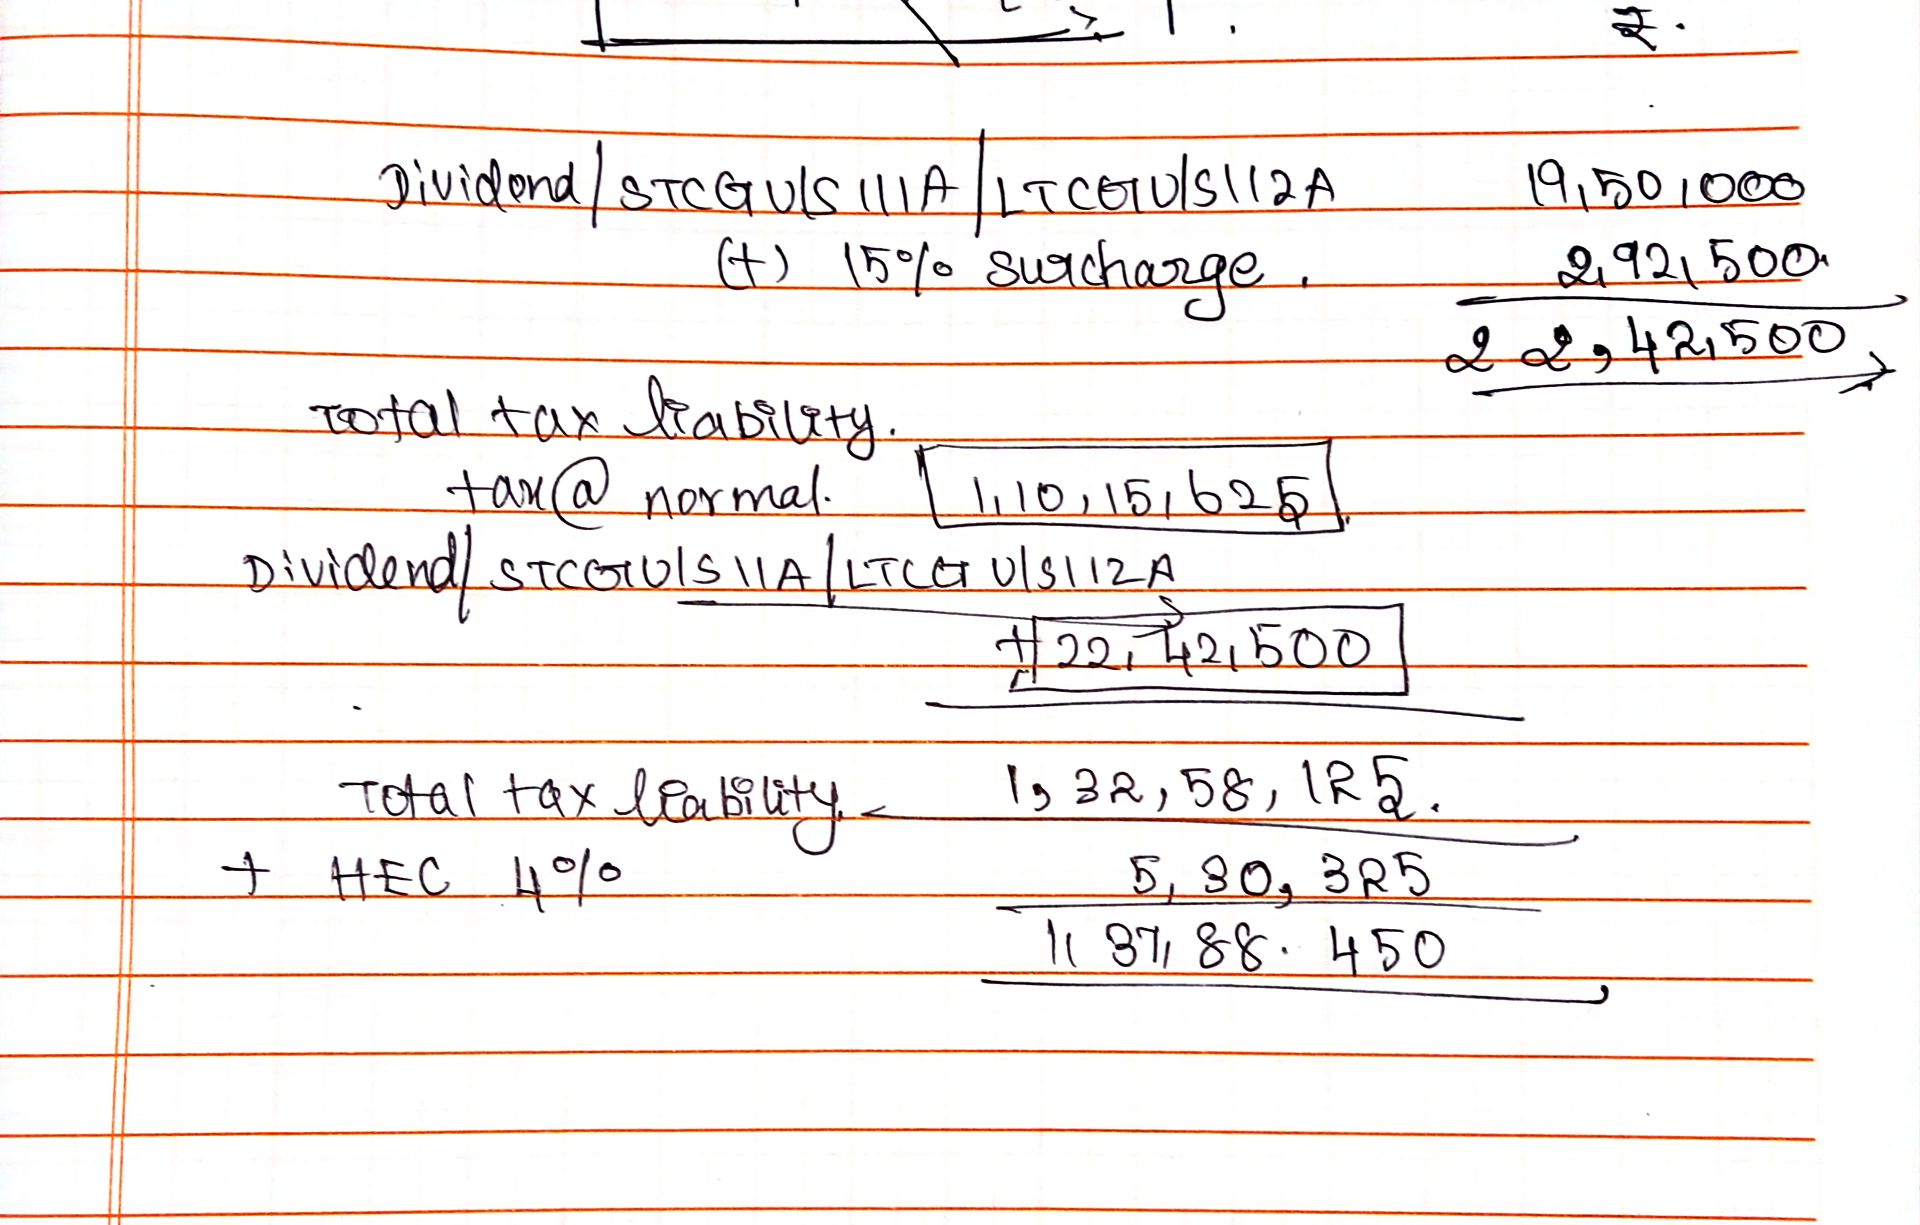 ₹.
Dividend/STCG U/S 111A/LTCG U/S 112A 19,50,000
(+) 15% surcharge. 2,92,500.
22,42,500
Total tax liability.
tax@ normal. 1,10,15,625
Dividend/STCG U/S 11A/LTCG U/S 112A
+ 22,42,500
Total tax liability 1,32,58,125.
+ HEC 4% 5,30,325
1,37,88.450